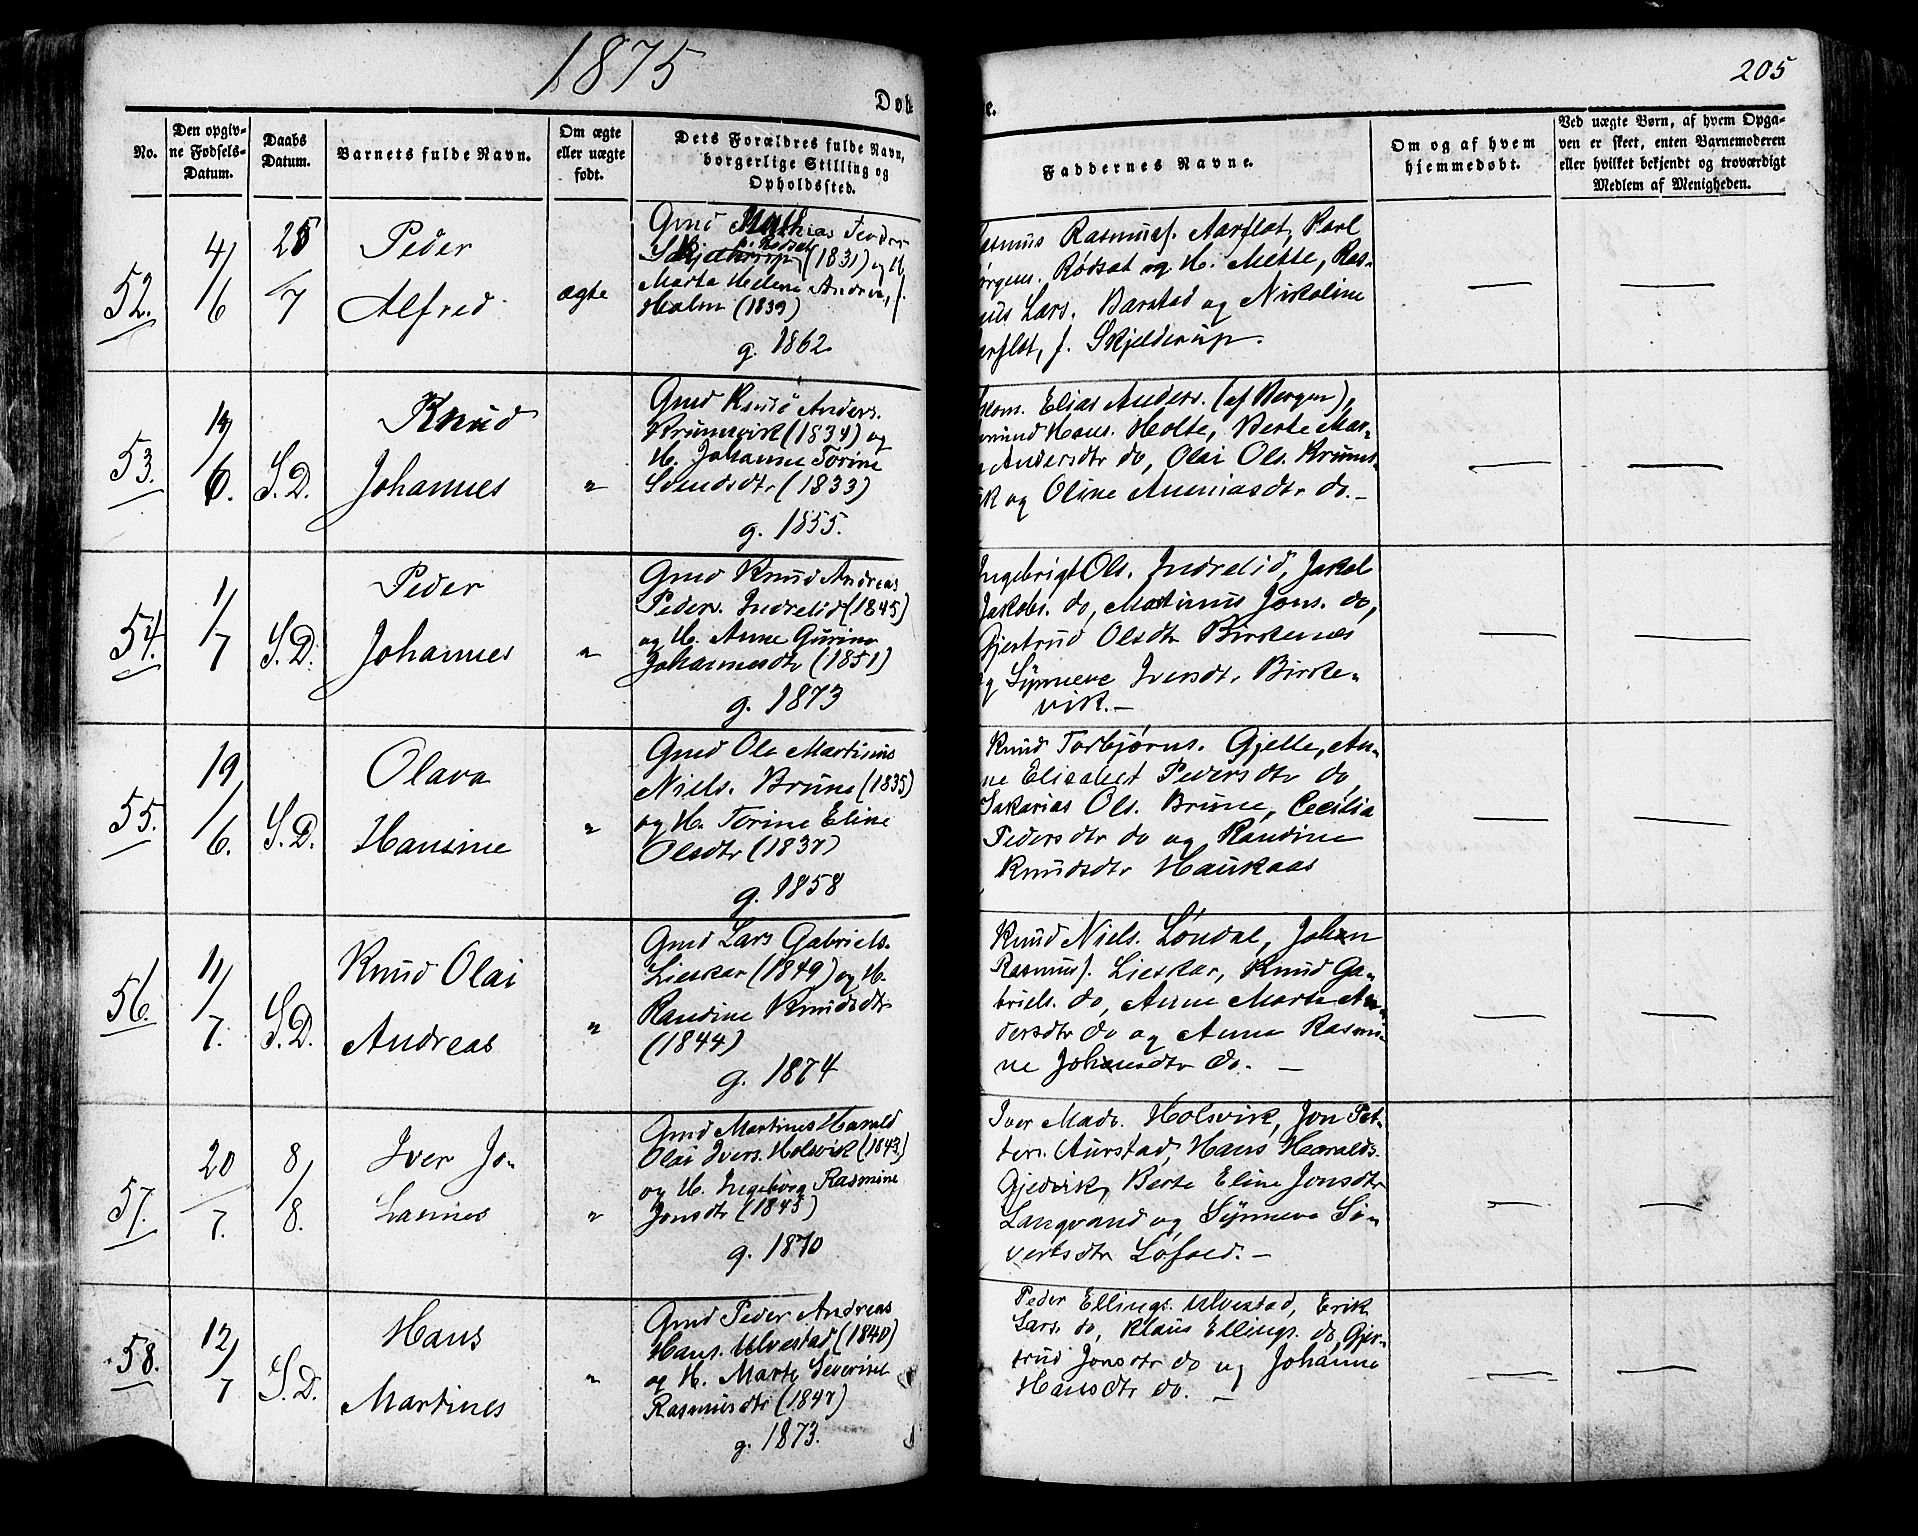 1875
205
Døb
e.
No.
Den opgiv-
ne Fødsels-
Datum.
Daabs
Datum.
Barnets fulde Navn.
Om ægte
eller uægte
født.
Dets Forældres fulde Navn,
borgerlige Stilling og
Opholdssted.
Faddernes Navne.
Om og af hvem
hjemmedøbt.
Ved uægte Børn, af hvem Opga-
ven er skeet, enten Barnemoderen
eller hvilket bekjendt og troværdigt
Medlem af Menigheden.
52.
4/6
25/7
Peder
Alfred
ægte
Gmd Mathias
Rødset
(1831) og H.
Marta Helene Andrea, f.
Holm (1839)
g. 1862
Rasmusf. Aarflot, Karl
Rødsat og H. Mette, Ras-
Lars. Barstad og Nikoline
f. Skjelderup.
53.
/6.
S.D.
Knud
Johannes
"
Gmd Knud Anders.
Krumsvik (1834) og
H. Johanne Torine
Svendsdtr (1833)
g. 1855.
Elias Anders. (af Bergen),
Hans. Holte, Berte Mar-
Andersdtr do, Olai Ols. Krums-
ik og Oline Ananiasdtr do. -
54.
1/7
S.D.
Peder
Johannes
"
Gmd Knud Andreas
Peders. Indrelid (1845)
og H. Anne Gurine
Johannesdtr (1851)
g. 1873
Ingebrigt Ols. Indrelid, Jakob
Jakobs. do, Martinus Jons. do,
Gjertrud Olsdtr Birkenes
og Synneve Iversdtr Birke-
vik. -
55.
19/6.
S.D.
Olava
Hansine
"
Gmd Ole Martinus
Niels. Brune (1835)
og H. Torine Eline
Olsdtr (1837)
g. 1858
Knud Torbjørns. Gjelle, An-
ne Elisabet Pedersdtr do
Sakarias Ols. Brune, Cecilia
Pedersdtr do og Randine
Knudsdtr Haukaas
56.
11/7.
S.D.
Knud Olai
Andreas
"
Gmd Lars Gabriels.
Lieskar (1849) og H.
Randine Knudsdtr
(1844)
g. 1874
Knud Niels. Løndal, Johan
Rasmusf. Lieskar, Knud Ga-
briels. do, Anne Marte An-
dersdtr do og Anne Rasmi-
ne Johansdtr do. -
57.
20/7.
8/8.
Iver Jo-
hannes
"
Gmd Martines Harald
Olai Ivers. Holsvik (1843)
og H. Ingeborg Rasmine
Jonsdtr (1845)
g. 1870
Iver Mads. Holsvik, Jon Pet-
ters. Aurstad, Hans Haralds.
Gjedvik, Berte Eline Jonsdtr
Langvand og Synneve Si-
vertsdtr Løfoed. -
58.
12/7
S.D.
Hans
Martines
"
Gmd Peder Andreas
Hans. Ulvestad (1840)
og H. Marte Severine
Rasmusdtr (1847)
g. 1873.
Peder Ellings. Ulvestad, Erik
Lars. do, Klaus Ellings. do, Gjer-
trud Jonsdtr do og Johanne
Hansdtr do. -